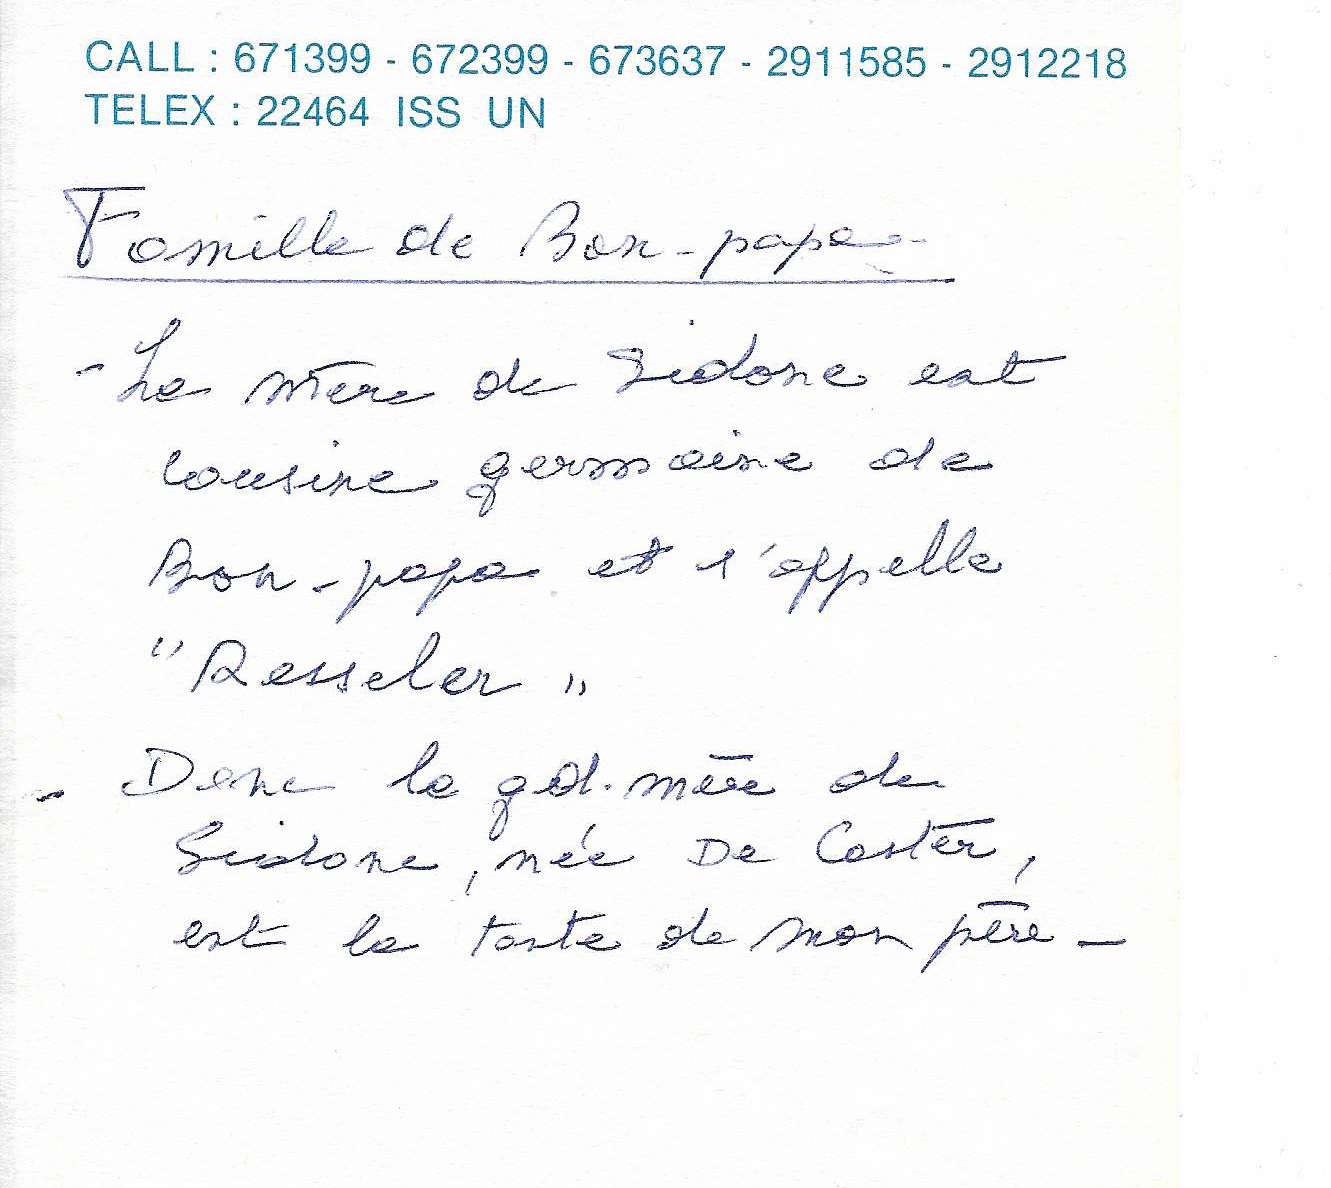 CALL : 671399 - 672399 - 673637 - 2911585 - 2912218
TELEX : 22464 ISS UN
Famille de Bon-papa -
- La mère de Sidone est
cousine germaine de
Bon-papa et s'appelle
"Resseler"
- Donc la gd. mère de
Sidone, née De Coster,
est la tante de mon père -